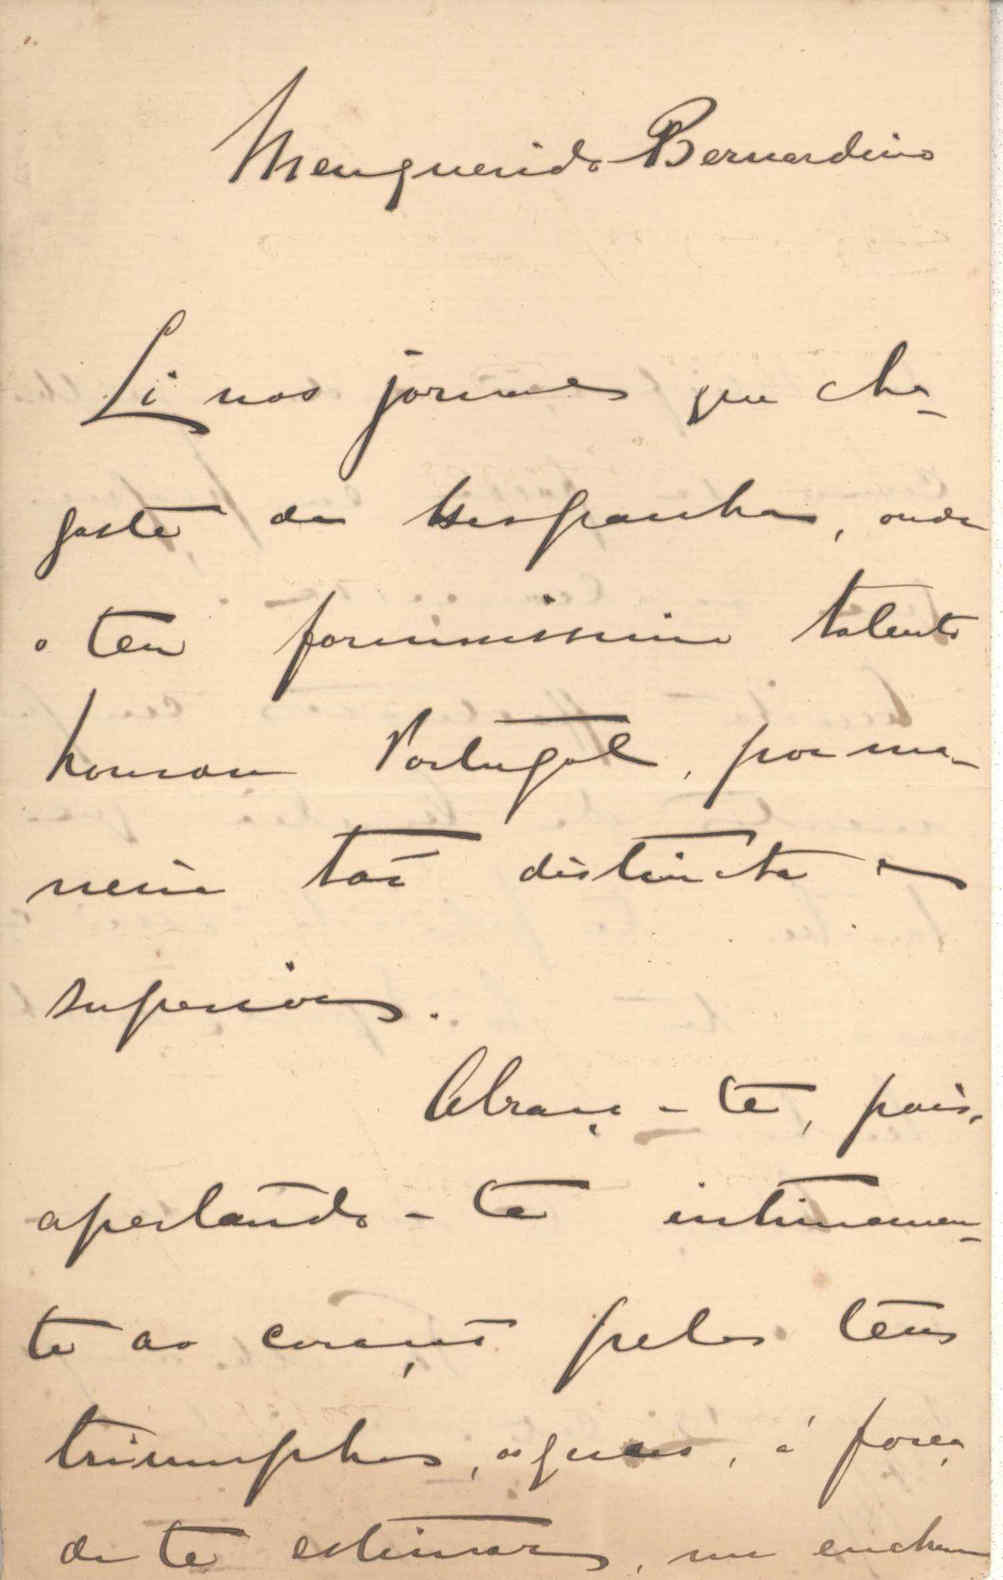 Meu querido Bernardino
Li nos jornaes que che-
gaste de Hespanha, onde
o teu formosissimo talento
honrou Portugal, por ma-
neira tão distincta e
superior.
Abraço-te, pois,
apertando-te intimamen-
te ao coração pelos teus
triumphos, os quaes, á força
de te estimar, me enchem